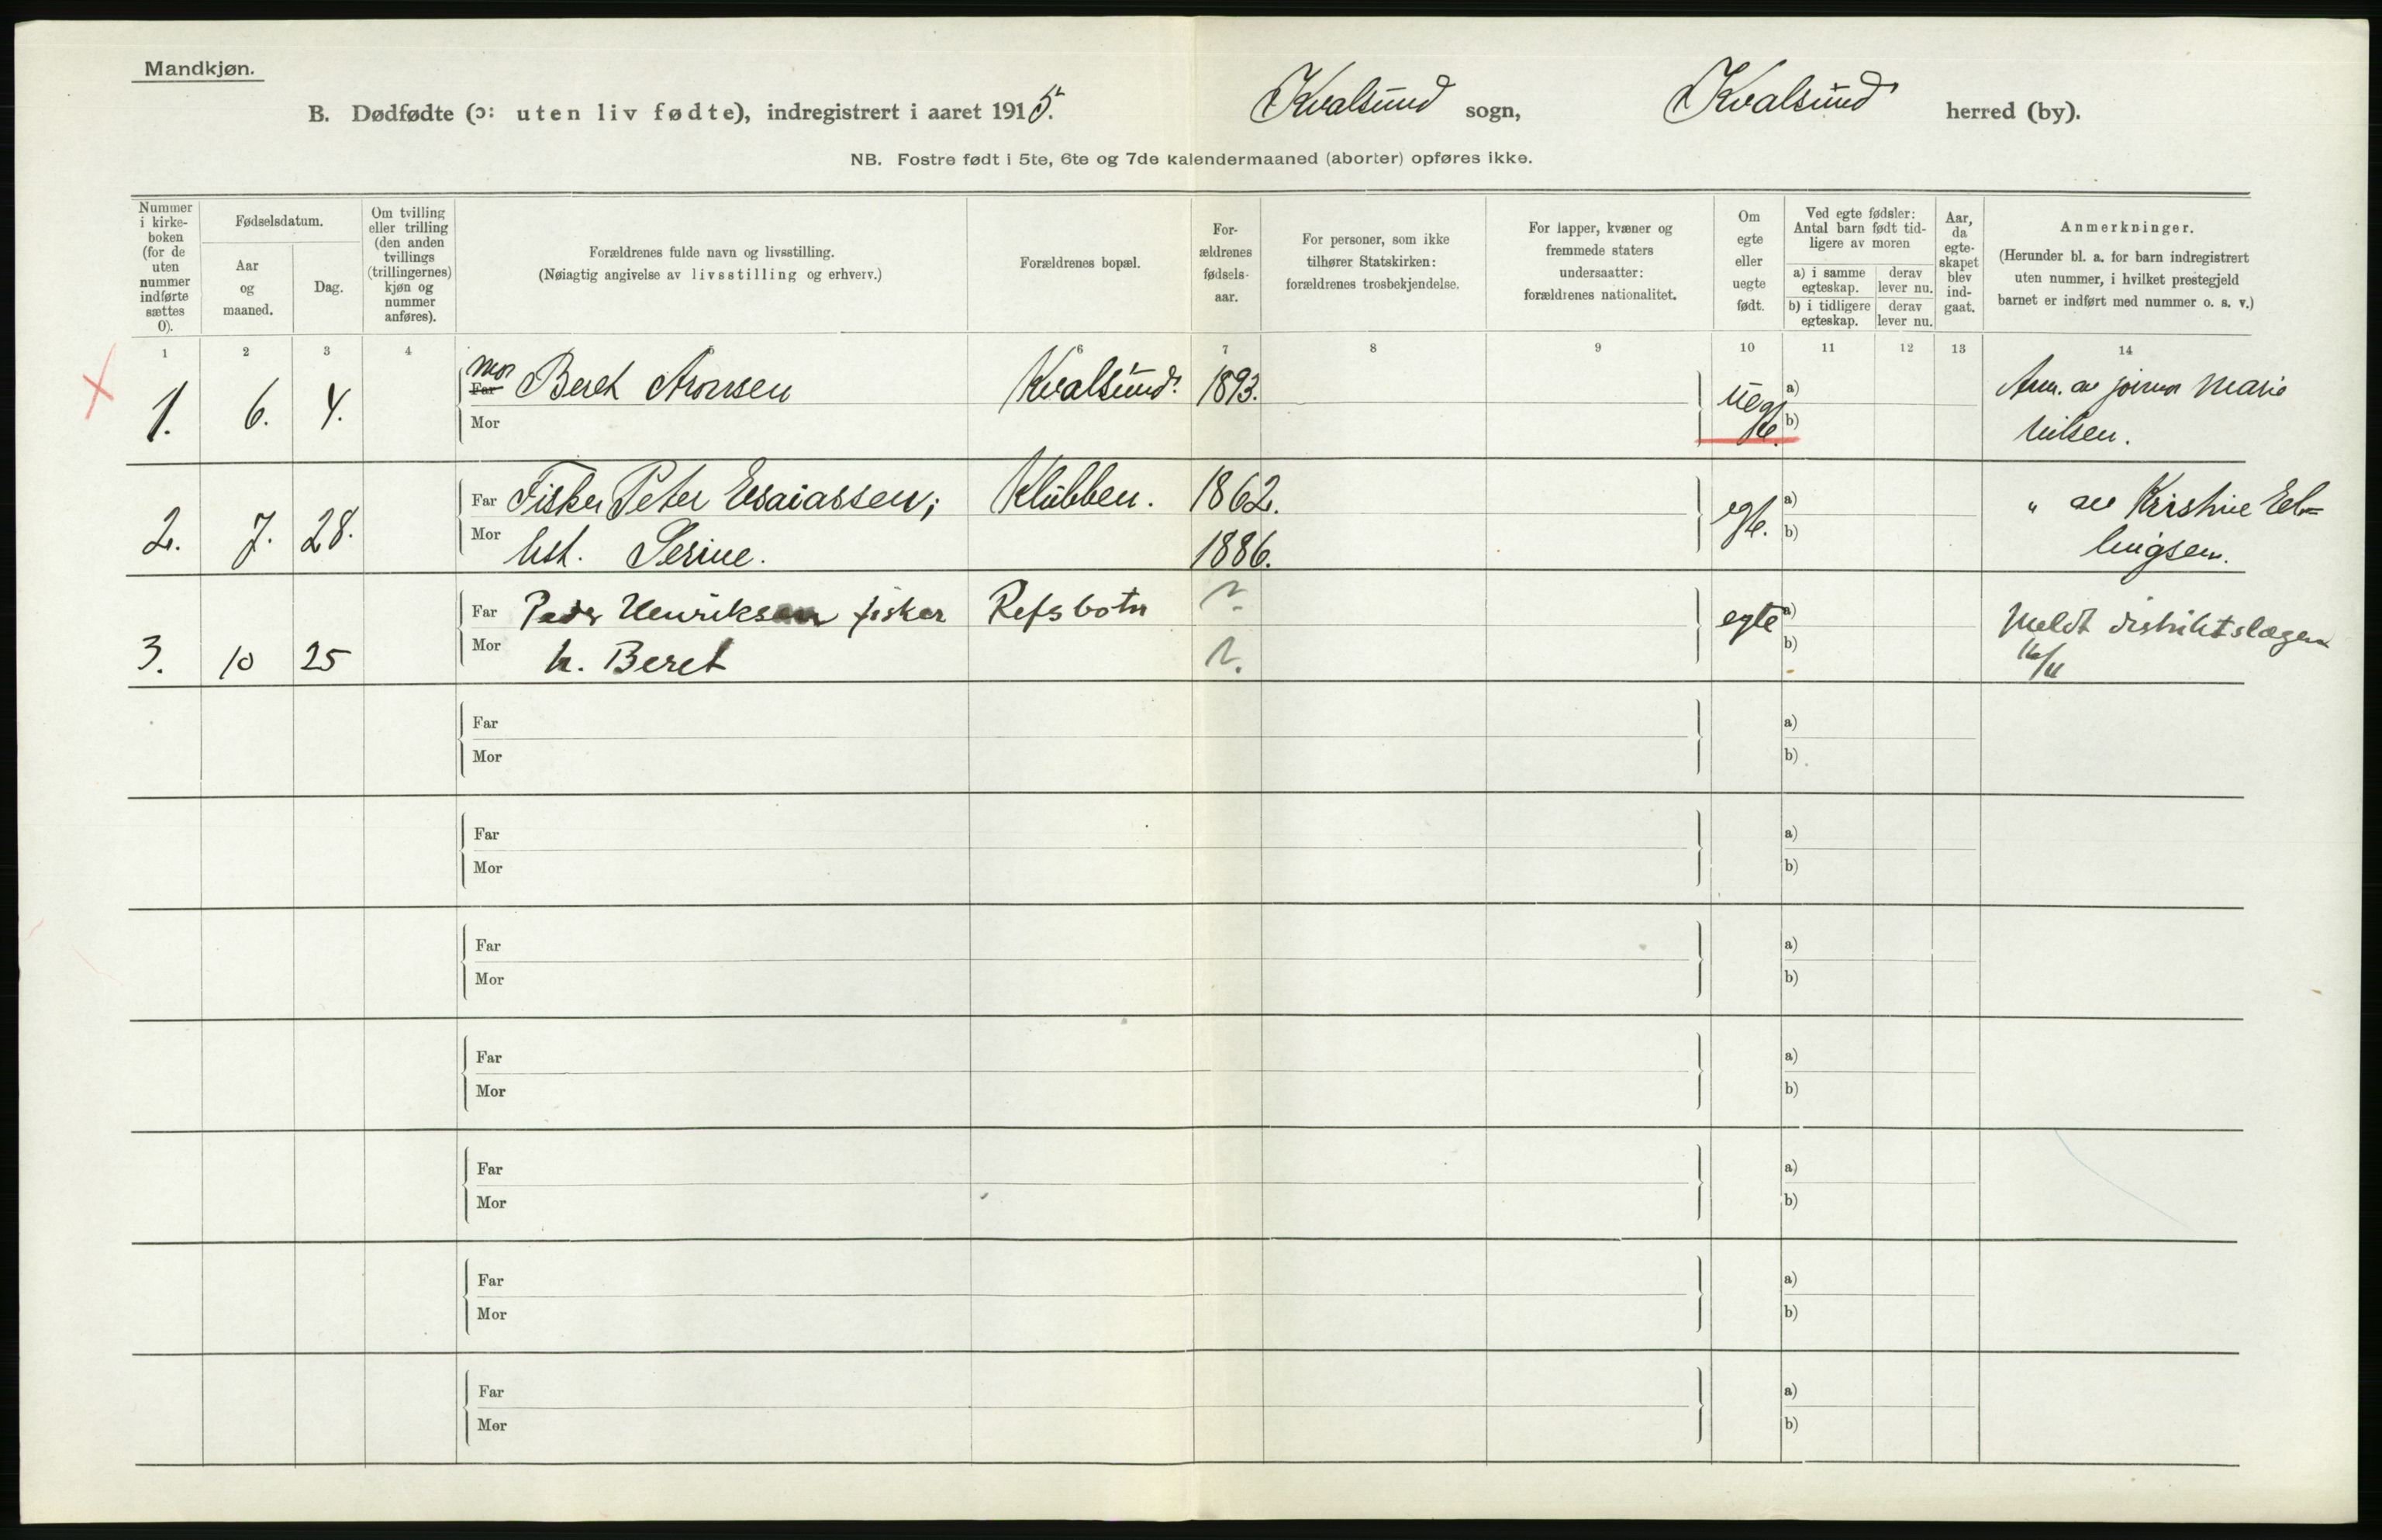 Mandkjøn.
B. Dødfødte (ɔ: uten liv fødte), indregistrert i aaret 1915. Kvalsund sogn, Kvalsund herred (by).
NB. Fostre født i 5te, 6te og 7de kalendermaaned (aborter) opføres ikke.
Nummer
i kirke-
boken
(for de
uten
nummer
indførte
sættes
0).
Fødselsdatum.
Aar
og
maaned.
Dag.
Om tvilling
eller trilling
(den anden
tvillings
(trillingernes)
kjøn og
nummer
anføres).
Forældrenes fulde navn og livsstilling.
(Nøiagtig angivelse av livsstilling og erhverv.)
Forældrenes bopæl.
For-
ældrenes
fødsels-
aar.
For personer, som ikke
tilhører Statskirken:
forældrenes trosbekjendelse.
For lapper, kvæner og
fremmede staters
undersaatter:
forældrenes nationalitet.
Om
egte
eller
uegte
født.
Ved egte fødsler:
Antal barn født tid-
ligere av moren
a) i samme
egteskap.
derav
lever nu.
b) i tidligere
egteskap.
derav
lever nu.
Aar,
da
egte-
skapet
blev
ind-
gaat.
Anmerkninger.
(Herunder bl. a. for barn indregistrert
uten nummer, i hvilket prestegjeld
barnet er indført med nummer o. s. v.)
1 2 3 4 5 6 7 8 9 10 11 12 13 14
Mor
1. 6. 4. Far Beret Aronsen Kvalsund. 1893. uegte. a) Anm. av jormor Marie
Mor b) Nilsen.
2. 7. 28. Far Fisker Peter Esaiassen; Klubben. 1862. egte. a) " av Kirstine
Mor hst. Serine. 1886. b)
3. 10 25 Far Peder Henriksen fisker Refsbotn ?. egte a) Meldt distriktslægen
Mor h. Beret ?. b)
Far a)
Mor b)
Far a)
Mor b)
Far a)
Mor b)
Far a)
Mor b)
Far a)
Mor b)
Far a)
Mor b)
Far a)
Mor b)